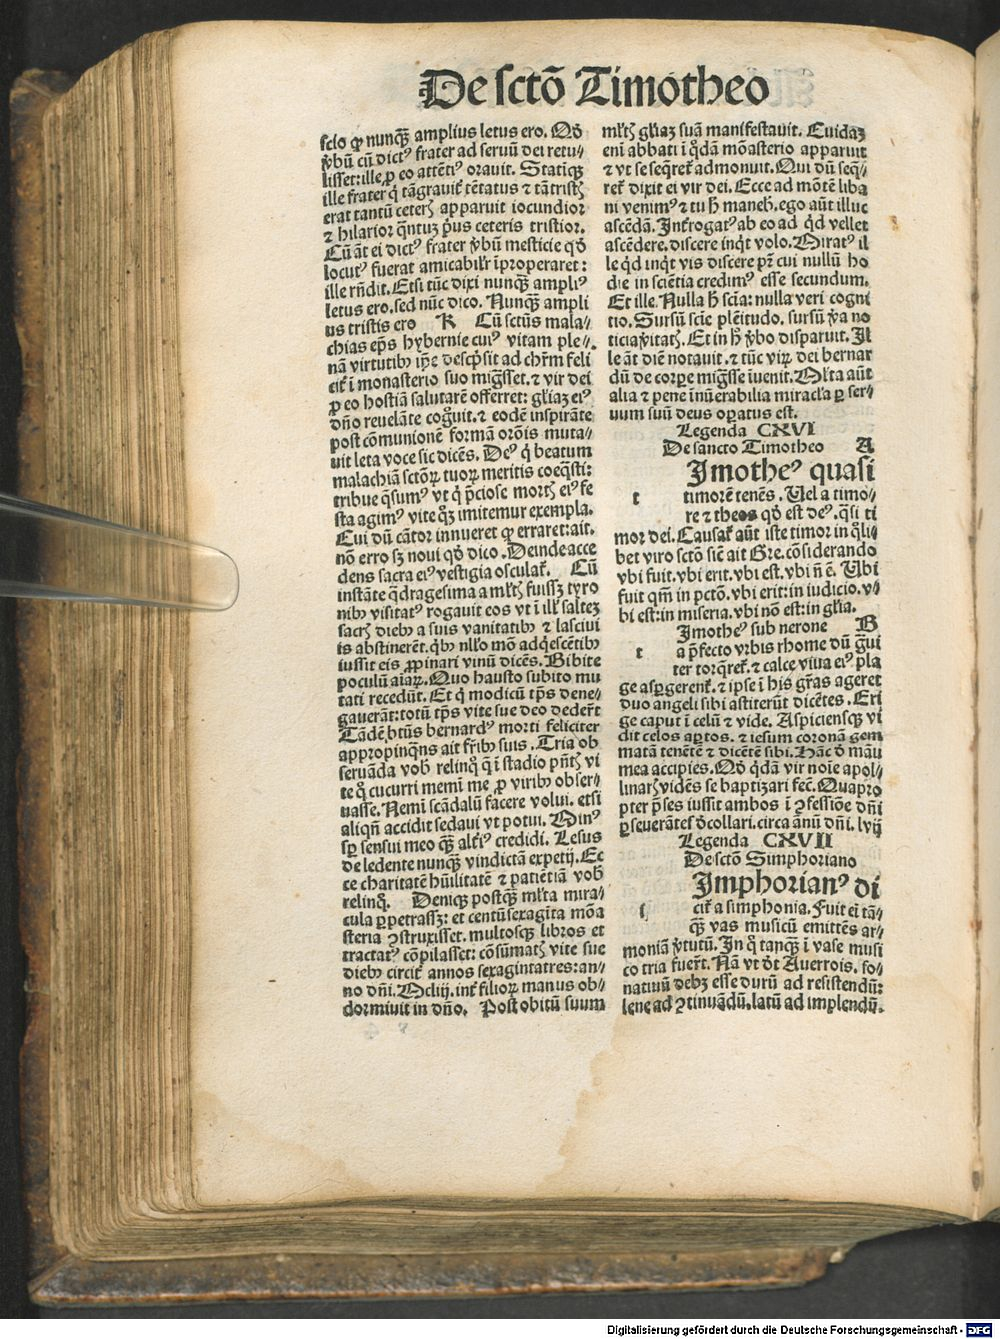 De sctō Timotheo
scio ꝙ nunqꝫ amplius letus ero. Qđ
v̄bū cū dictꝰ frater ad seruū dei retu-/
lisset: ille ꝓ eo attētiꝰ orauit. Statīqꝫ
ille frater q̄ tā grauiť tētatus ⁊ tā tristꝭ
erat tantū ceterꝭ apparuit iocundior
⁊ hilarior q̄ntuꝫ p̄us ceteris tristior.
Cū āt ei dictꝰ frater v̄bū mesticie qđ
locutꝰ fuerat amicabilr̄ īproperaret:
ille rn̄dit. Etsi tūc dixi nunqꝫ ampliꝰ
letus ero. sed nūc dico. Nunqꝫ ampli
us tristis ero K Cū sctūs mala-/
chias ep̄s hybernie cuiꝰ vitam ple-/
nā virtutibꝰ ip̄e descp̄sit ad chr̄m feli
ciť ī monasterio suo migr̄sset. ⁊ vir dei
ꝓ eo hostiā salutarē offerret: gl̄iaꝫ eiꝰ
dn̄o reuelāte cogͦuit. ⁊ eodē inspirāte
post cōmunionē formā orōis muta-/
uit leta voce sic dicēs. Deꝰ q̄ beatum
malachiā sctōꝝ tuoꝝ meritis coeq̄sti:
tribue q̄sumꝰ vt q̄ p̄ciose mortꝭ eiꝰ fe
sta agimꝰ vite qꝫ imitemur exempla.
Cui dū cātor innueret ꝙ erraret: ait.
nō erro sꝫ noui qđ dico. Deinde acce
dens sacra eiꝰ vestigia osculaꝉ. Cū
instāte q̄dragesima a ml̄tꝭ fuissꝫ tyro
nibꝰ visitatꝰ rogauit eos vt ī ill̄ saltez
sacrꝭ diebꝰ a suis vanitatibꝰ ⁊ lasciui
is abstinerēt. q̄bꝰ nll̄o mō adq̄escētibꝰ
iussit eis ꝓpinari vinū dicēs. Bibite
poculū aīaꝝ. Quo hausto subito mu
tati recedūt. Et q̄ modicū tp̄s dene-/
gauerāt: totū tp̄s vite sue deo dederūt
Tādē btūs bernardꝰ morti feliciter
appropinq̄ns ait fr̄ibꝰ suis. Tria ob
seruāda vob̄ relinq̄ q̄ ī stadio pn̄tꝭ vi
te q̄ cucurri memī me ꝓ viribꝰ obser-/
uasse. Nemī scādalū facere volui. etsi
aliqn̄ accidit sedaui vt potui. Minꝰ
sꝑ sensui meo qꝫ altēiꝰ credidi. Lesus
de ledente nunqꝫ vindictā expetij. Ec
ce charitatē hūilitatē ⁊ patiētiā vob̄
relinq̄. Deniqꝫ postqꝫ ml̄ta mira-/
cula ꝑpetrassꝫ: et centū sexagīta mōa
steria ꝯstruxisset. multosqꝫ libros et
tractatꝰ cōpilasset: cōsūmatꝭ vite sue
diebꝰ circiť annos sexagintatres: an-/
no dn̄i. Mcliij. inť filioꝝ manus ob-/
dormiuit in dn̄o. Post obitū suum
ml̄tꝭ gl̄iaꝫ suā manifestauit. Cuidaꝫ
enī abbati ī q̄dā mōasterio apparuit
⁊ vt se seq̄reť admonuit. Qui dū seq̄-/
reť dixit ei vir dei. Ecce ad mōtē liba
ni venimꝰ ⁊ tu h̄ manebꝭ. ego aūt illuc
ascēdā. Inťrogatꝰ ab eo ad q̄d vellet
ascēdere. discere inq̄t volo. Miratꝰ il
le q̄d inq̄t vis discere pr̄ cui nullū ho
die in sciētia credimꝰ esse secundum.
Et ille. Nulla h̄ scīa: nulla veri cogni
tio. Sursū scīe plēitudo. sursū v̄a no
ticia v̄itatꝭ. Et in h̄ v̄bo disparuit. Il
le āt diē notauit. ⁊ tūc viꝝ dei bernar
dū de corꝑe migr̄sse īuenit. Ml̄ta aūt
alia ⁊ pene īnūerabilia miracl̄a ꝑ ser-/
uum suū deus oꝑatus est.
Legenda CXVI
De sancto Timotheo A
Imotheꝰ quasi
t timorē tenēs. Uel a timo-/
re ⁊ theos qđ est deꝰ. q̄si ti
mor dei. Causaꝉ aūt iste timor in q̄li-/
bet viro sctō sic̄ ait Gre. cōsiderando
vbi fuit. vbi erit. vbi est. vbi n̄ ē. Ubi
fuit qm̄ in pctō. vbi erit: in iudicio. v-/
bi est: in miseria. vbi nō est: in gl̄ia.
Imotheꝰ sub nerone B
t a p̄fecto vrbis rhome dū ḡui
ter torq̄reť. ⁊ calce viua eiꝰ pla
ge asꝑgerenť. ⁊ ipse ī his gr̄as ageret
duo angeli sibi astiterūt dicētes. Eri
ge caput ī celū ⁊ vide. Aspiciensqꝫ vi
dit celos aꝑtos. ⁊ iesum coronā gem
matā tenētē ⁊ dicētē sibi. Hāc đ māu
mea accipies. Qđ q̄dā vir noīe apol-/
linarꝭ vidēs se baptizari fec̄. Quapro
pter p̄ses iussit ambos ī ꝯfessiōe dn̄i
ꝑseuerātes đcollari. circa ānū dn̄i. lvij
Legenda CXVII
De sctō Simphoriano
Imphorianꝰ di
s ciť a simphonia. Fuit eī tā-/
qꝫ vas musicū emittēs ar-/
moniā v̄tutū. In q̄ tanqꝫ ī vase musi
co tria fuer̄t. Nā vt đt Auerrois. so-/
natiuū debꝫ esse durū ad resistendū:
lene ad ꝯtinuādū. latū ad implendū.
Digitalisierung gefördert durch die Deutsche Forschungsgemeinschaft - DFG